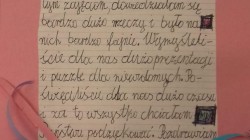 tym zajęciom, dowiedziałam się
bardzo dużo rzeczy i było na
nich bardzo fajnie. Wymyśleli-
ście dla nas dużo prezentacji
i puzzle dla niewidomych. Po-
święciliście dla nas dużo czasu
i za to wszystko chciałam
podziękować. Pozdrawiam